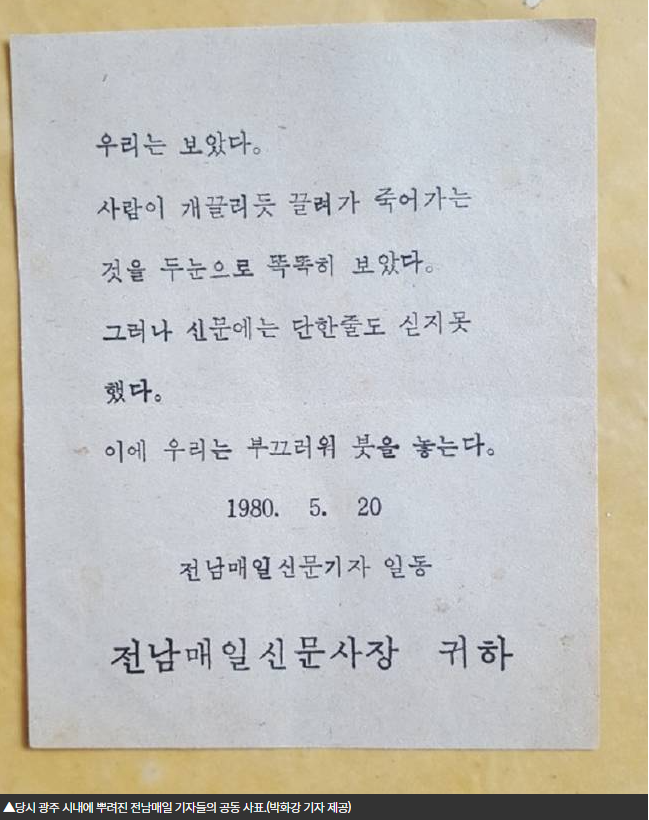 우리는 보았다.
사람이 개끌리듯 끌려가 죽어가는
것을 두눈으로 똑똑히 보았다.
그러나 신문에는 단한줄도 싣지못
했다.
이에 우리는 부끄러워 붓을 놓는다.
1980. 5. 20
전남매일신문기자 일동
전남매일신문사장 귀하
▲당시 광주 시내에 뿌려진 전남매일 기자들의 공동 사표.(박화강 기자 제공)